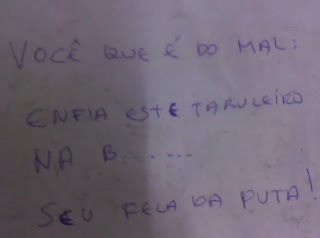 VOCÊ QUE É DO MAL:
ENFIA ESTE TABULEIRO
NA B.......
SEU FELA DA PUTA!